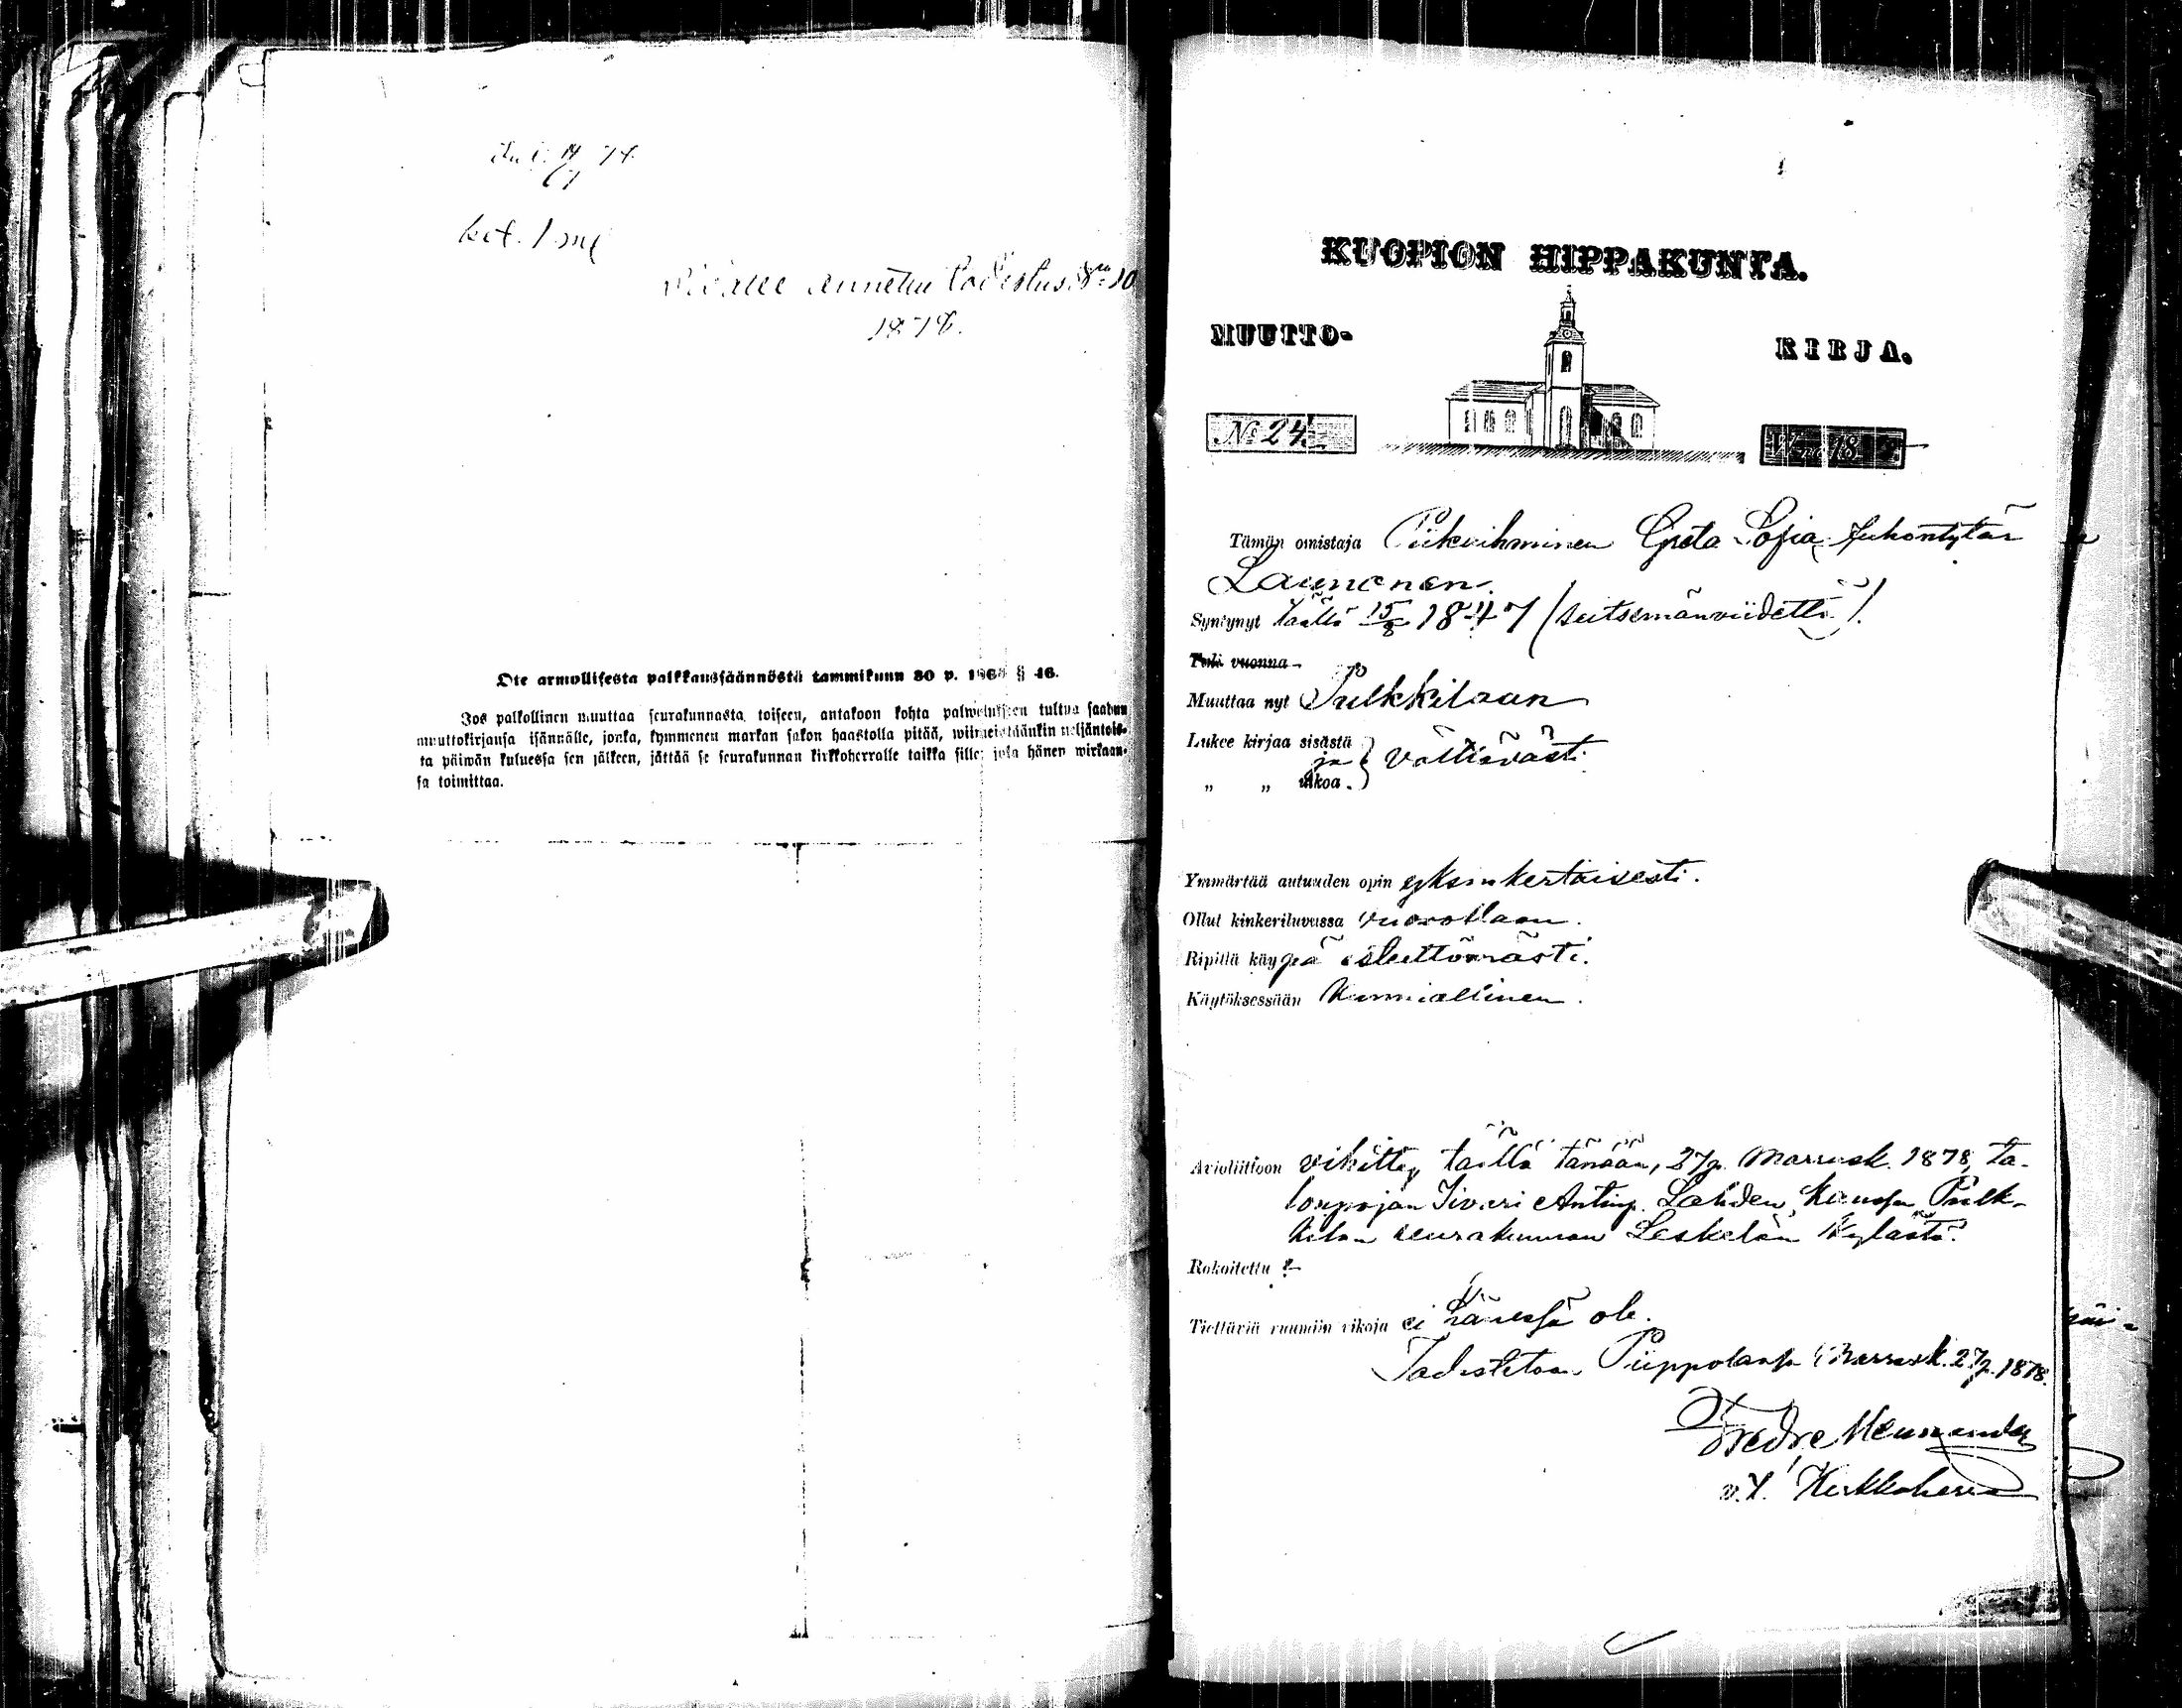 ket. 1 mk
annettu todistus No 10
1878.
Ote armollisesta palkkaussäännöstä tammikuun 30 p. 1865 § 46.
Jos palkollinen muuttaa seurakunnasta toiseen, antakoon kohta palwelukseen tultua saadun
muuttokirjansa isännälle, jonka, kymmenen markan sakon haastolla pitää, wiimeistäänkin neljäntois-
ta päiwän kuluessa sen jälkeen, jättää se seurakunnan kirkkoherralle taikka sille, joka hänen wirkaan-
sa toimittaa.
KUOPION HIPPAKUNTA.
MUUTTO- KIRJA.
No 24. W. 18
Tämän omistaja Piikaihminen Greta Sofia Juhontytär
Launonen.
Syntynyt täällä 15/8 1847 (seitsemänviidettä).
Tuli vuonna
Muuttaa nyt Pulkkilaan
Lukee kirjaa sisästä
ja } välttävästi
„ „ ulkoa.
Ymmärtää autuuden opin yksinkertaisesti.
Ollut kinkeriluvussa vuorollaan.
Ripillä käypä esteettömästi.
Käytöksessään Kunniallinen.
Avioliittoon vihitty täällä tänään, 27 p. Marrask. 1878, ta-
lonpojan Iivari Antinp. Lahden kanssa Pulk-
kilan seurakunnan Leskelän kylästä.
Rokoitettu ?
Tiettäviä ruumiin vikoja ei hänessä ole.
Todistetaan Piippolassa Marrask. 27 p. 1878.
v. t. Kirkkoherra